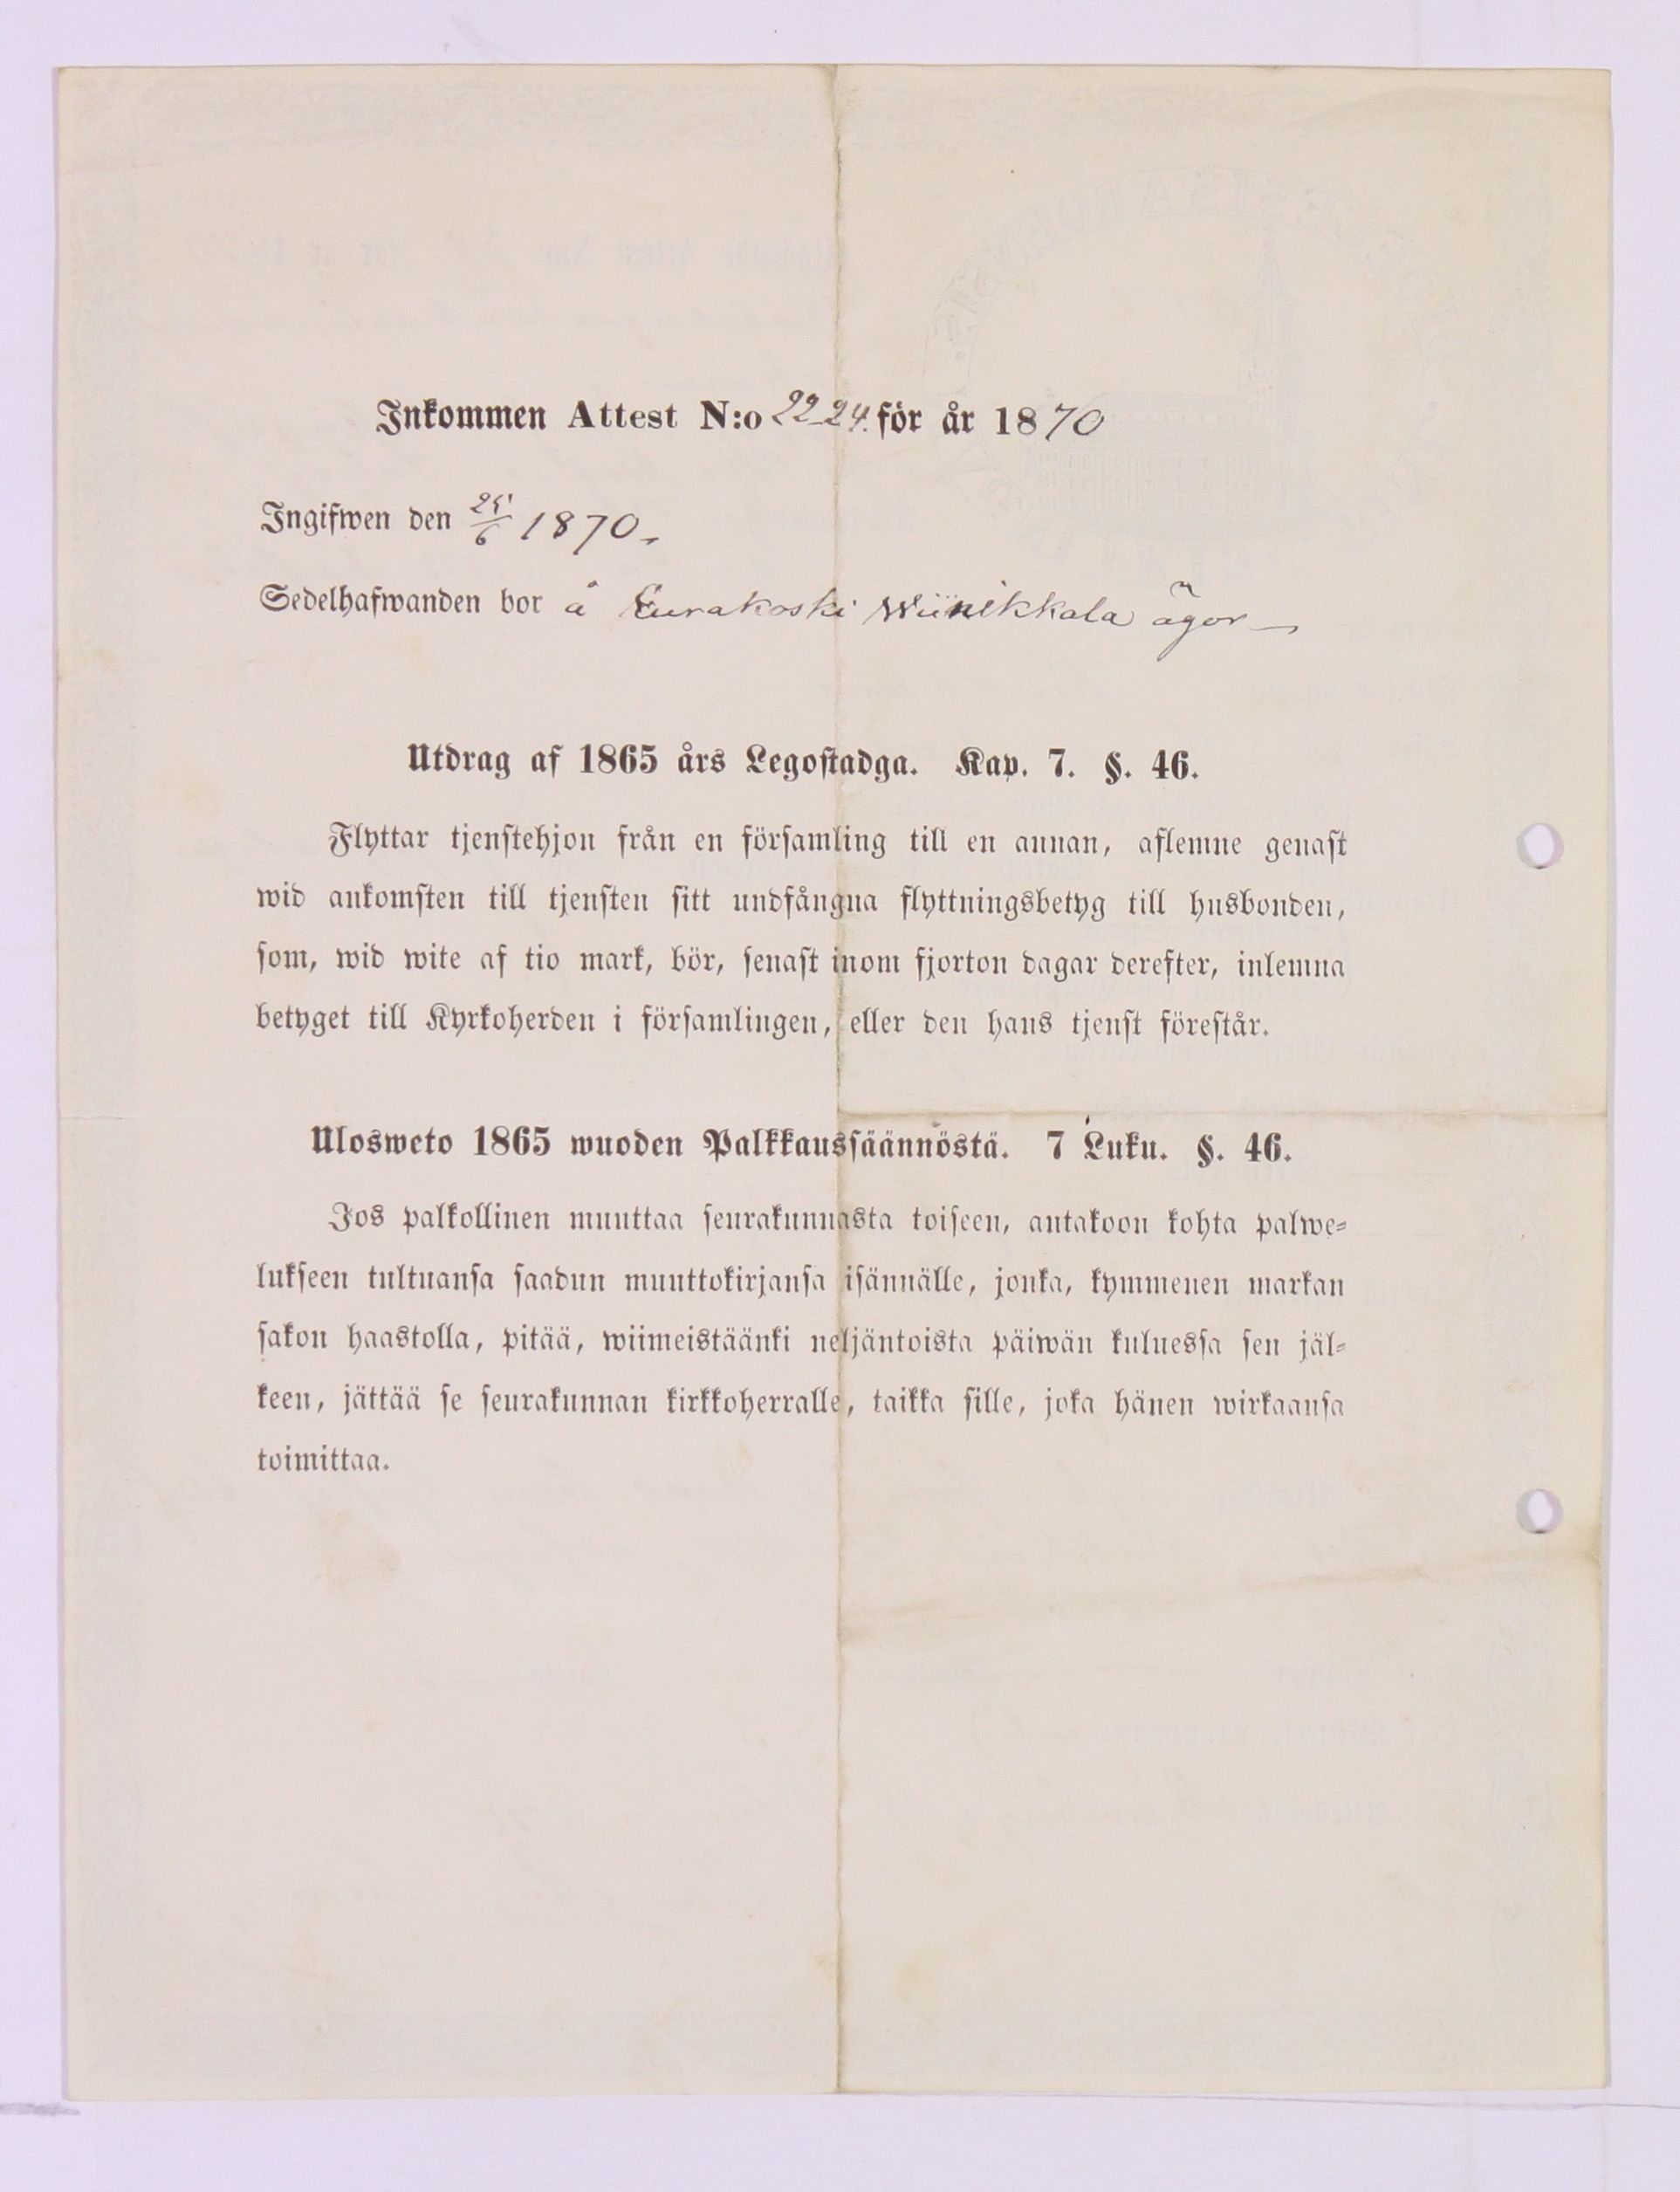 Inkommen Attest N:o 22-24. för år 1870
Ingifwen den 25/6 1870.
Sedelhafwanden bor å Eurakoski Wiinikkala ägor
Utdrag af 1865 års Legostadga. Kap. 7. §. 46.
Flyttar tjenstehjon från en församling till en annan, aflemne genast
wid ankomsten till tjensten sitt undfångna flyttningsbetyg till husbonden,
som, wid wite af tio mark, bör, senast inom fjorton dagar derefter, inlemna
betyget till Kyrkoherden i församlingen, eller den hans tjenst förestår.
Ulosweto 1865 wuoden Palkkaussäännöstä. 7 Luku. §. 46.
Jos palkollinen muuttaa seurakunnasta toiseen, antakoon kohta palwe-
lukseen tultuansa saadun muuttokirjansa isännälle, jonka, kymmenen markan
sakon haastolla, pitää, wiimeistäänki neljäntoista päiwän kuluessa sen jäl-
keen, jättää se seurakunnan kirkkoherralle, taikka sille, joka hänen wirkaansa
toimittaa.